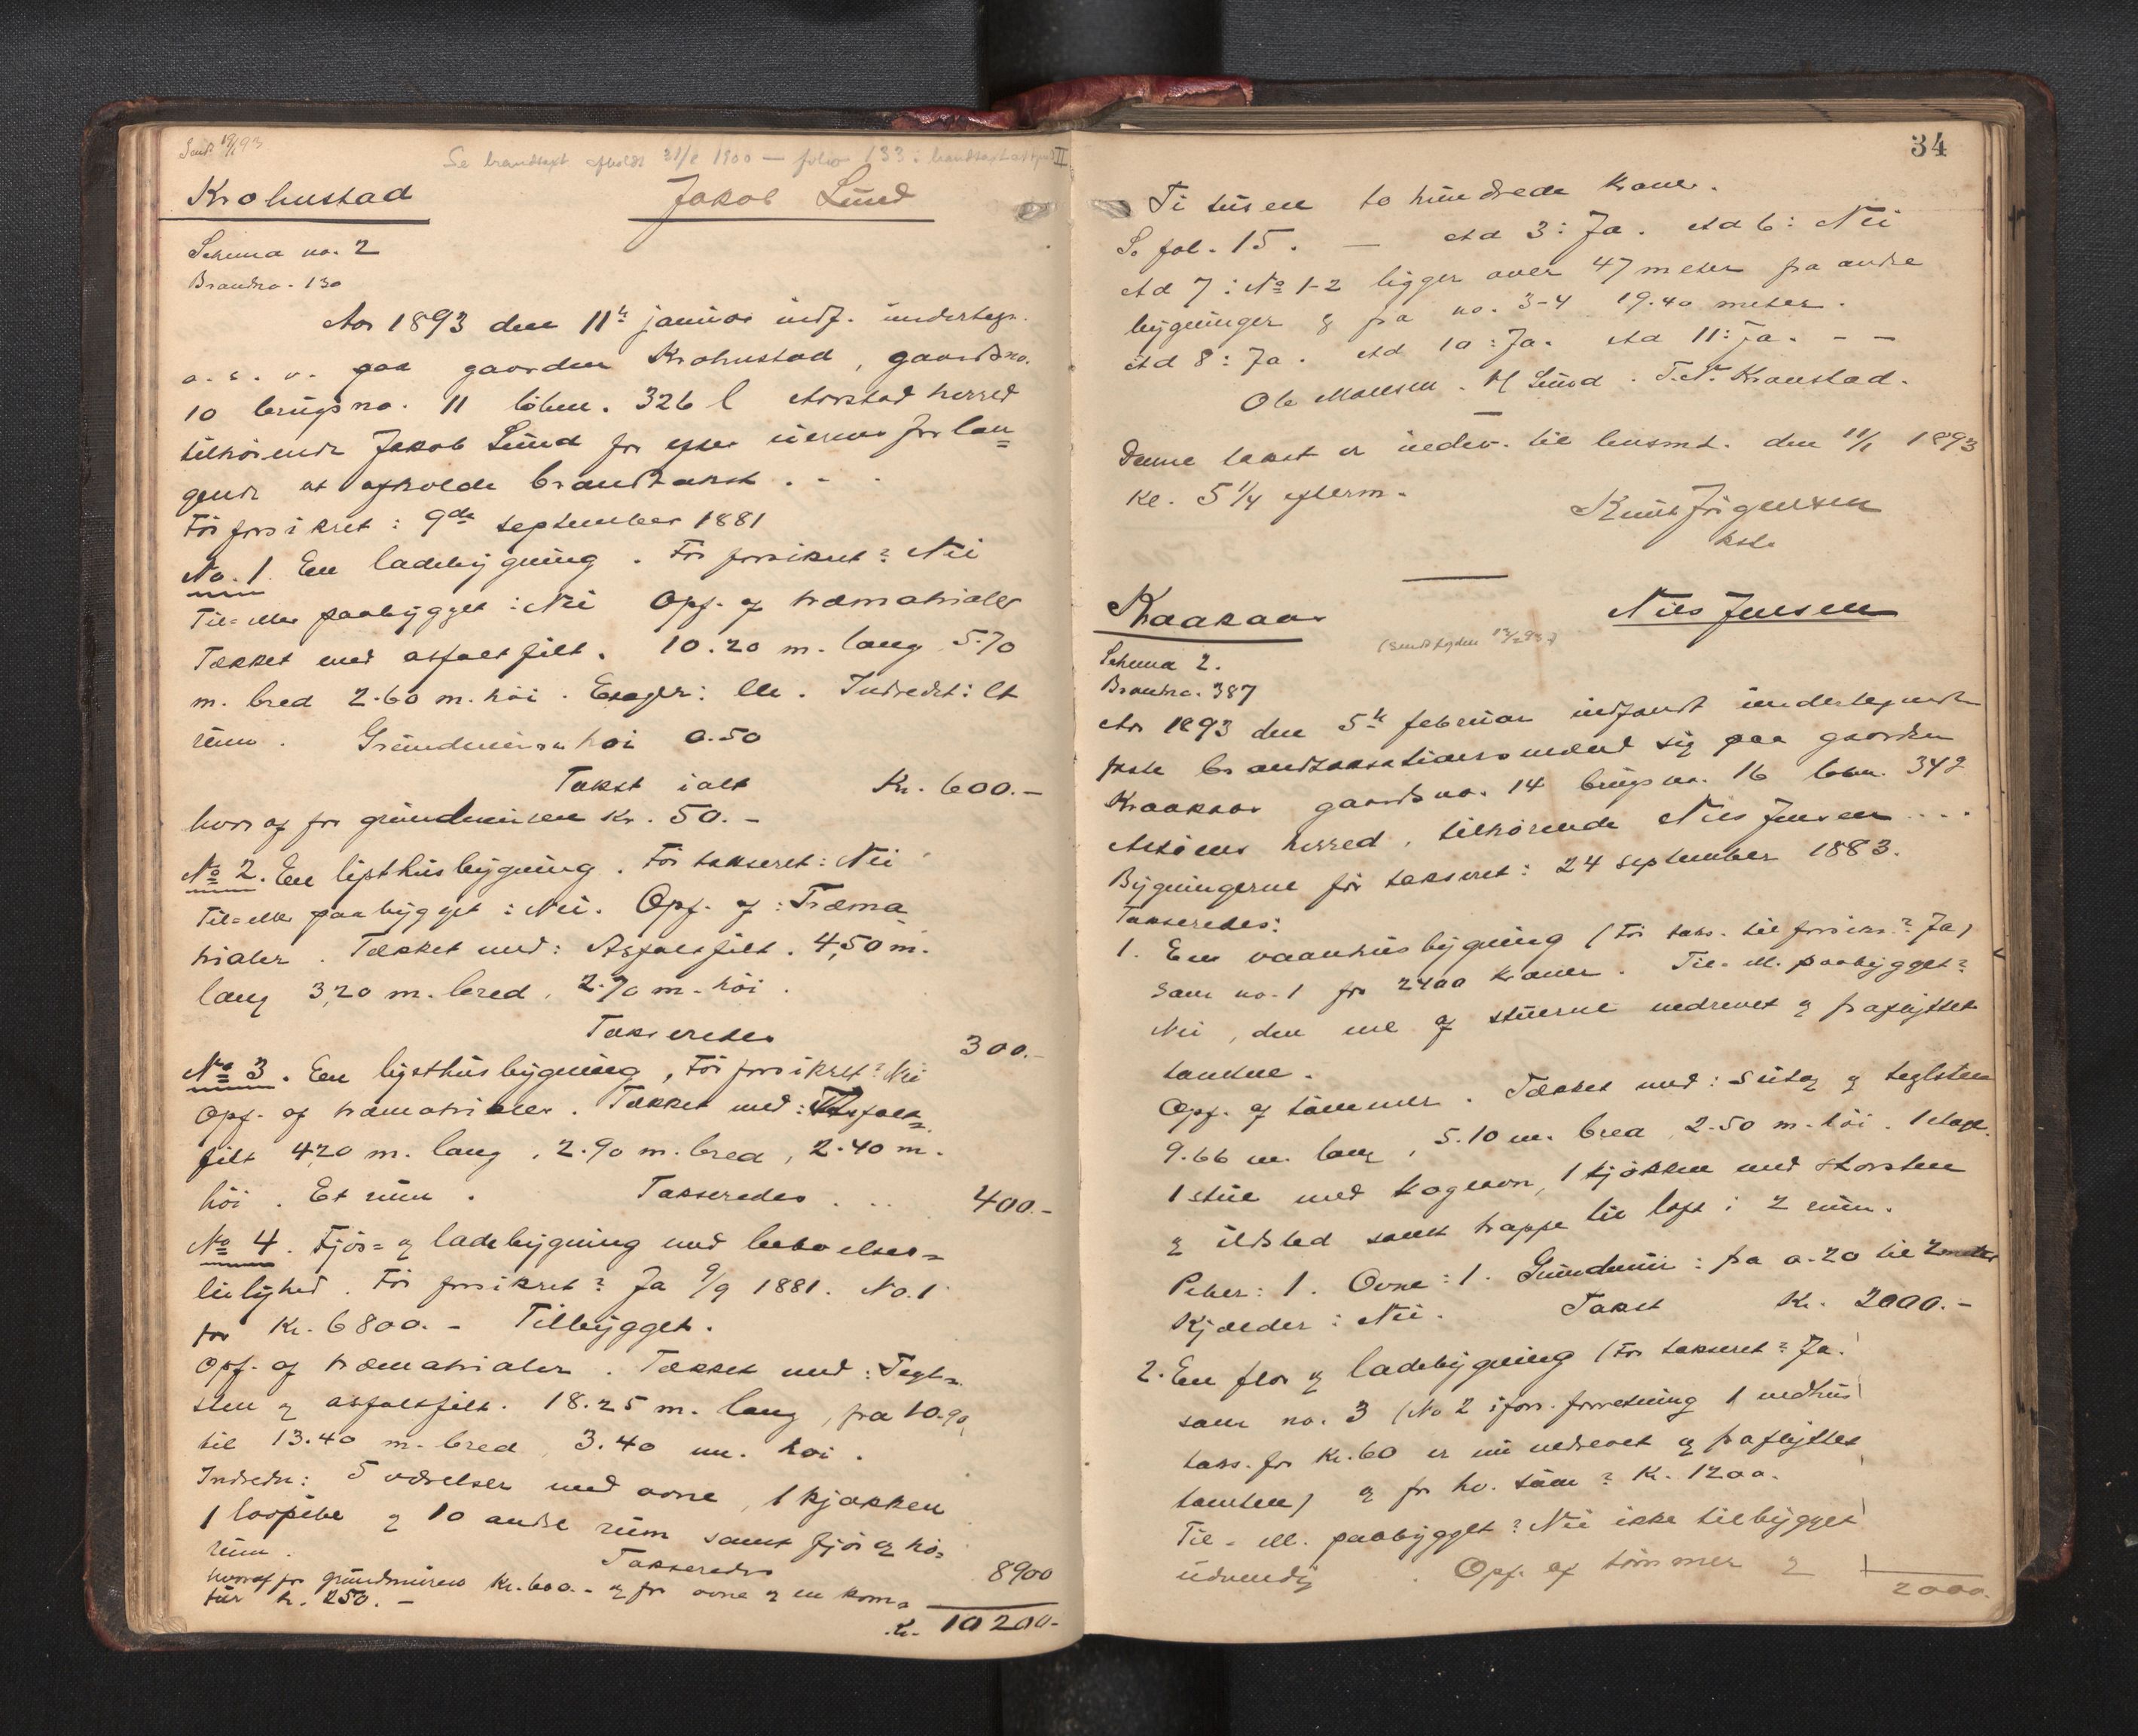 Sendt 19/1 93
Se brandtaxt afholdt 21/2 1900 — folio 133 i brandtaxtastprot II
Krohnstad Jakob Lund
Schema no. 2
Brandno. 130
Aar 1893 den 11te januar indf. undertegn.
o. s. v. paa gaarden Krohnstad, gaardsno.
10 brugsno. 11 løben. 326 l Aarstad herred
tilhörende Jakob Lund for efter eierens forlan=
gende at afholde brandtakst. - -
Før forsikret: 9de september 1881
No. 1. En ladebygning. Før forsikret? Nei
Til= eller paabygget: Nei Opf. af træmaterialer
Tækket med asfaltfilt. 10.20 m. lang 5.70
m. bred 2.60 m. høi. Etager: En. Indredet: Et
rum. Grundmuren høi 0.50
Takst ialt Kr. 600.-
hvoraf for grundmuren Kr. 50.-
No 2. En lysthusbygning. Før takseret: Nei
Til= eller paabygget: Nei. Opf. af: Træma
trialer. Tækket med: Asfaltfilt. 4,50 m.
lang 3,20 m. bred, 2.70 m. høi.
Takseredes 300.-
No 3. En lysthusbygning, Før forsikret? Nei
Opf. af træmaterialer. Tækket med: Asfalt=
filt 4.20 m. lang, 2.90 m. bred, 2.40 m.
høi. Et rum. Takseredes ... 400.-
No 4. Fjøs= og ladebygning med beboelses=
leilighed. Før forsikret? Ja 9/9 1881. No. 1
for Kr. 6800.- Tilbygget.
Opf. af træmaterialer. Tækket med: Tegl=
sten og asfaltfilt. 18.25 m. lang, fra 10.90
til 13.40 m. bred, 3.40 m. høi.
Indredn: 5 værelser med ovne, 1 kjøkken
1 loopibe og 10 andre rum samt fjøs og hø=
rum. Takseredes 8900
hvoraf for grundmuren Kr. 600.- og for ovne og en kom=
fur kr. 250.-
Kr. 10200.-
34
Ti tusen to hundrede kroner.
Se fol. 15. — Ad 3: Ja. Ad 6: Nei
Ad 7: No 1-2 ligger over 47 meter fra andre
bygninger og fra no. 3-4 19.40 meter.
Ad 8: Ja. Ad 10: Ja. Ad 11: Ja. - -
Ole Monsen. M Lund. T. N. Kronstad.
Denne takst er indlev. til lensmd. den 11/1 1893
Kl. 5 1/4 efterm.
Knut Jörgensen
kst.
Kraakaas Nils Jensen
Schema 2.
Brandno. 387
Aar 1893 den 5te februar indfandt undertegnede
faste brandtaksationsmænd sig paa gaarden
Kraakaas gaardsno. 14 brugsno. 16 løbn. 342
Askøens herred, tilhørende Nils Jensen ....
Bygningerne før takseret: 24 september 1883.
Takseredes:
1. En vaanhusbygning (Før taks. til forsikr.? Ja)
som no. 1 for 2400 kroner. Til- ell. paabygget?
Nei, den ene af stuerne nedrevet og fraflyttet
tomten.
Opf. af tømmer. Tækket med: sutag og teglsten
9.66 m. lang, 5.10 m. bred, 2.50 m. høi. 1 etage.
1 stue med kogeovn, 1 kjøkken med skorsten
og ildsted samt trappe til loft i 2 rum.
Peber: 1. Ovne: 1. Grundmur: fra 0.20 til 2 meter
Kjælder: Nei. Takst Kr. 2000.-
2. En flor og ladebygning (Før takseret? Ja.
som no. 3 (No 2 i forr. forretning 1 vedhus
taks. for Kr. 60 er nu nedrevet og fraflyttet
tomten) og for hv. sum? Kr. 1200.
Til- ell. paabygget? Nei ikke tilbygget
udvendig. Opf. af tømmer og
2000.